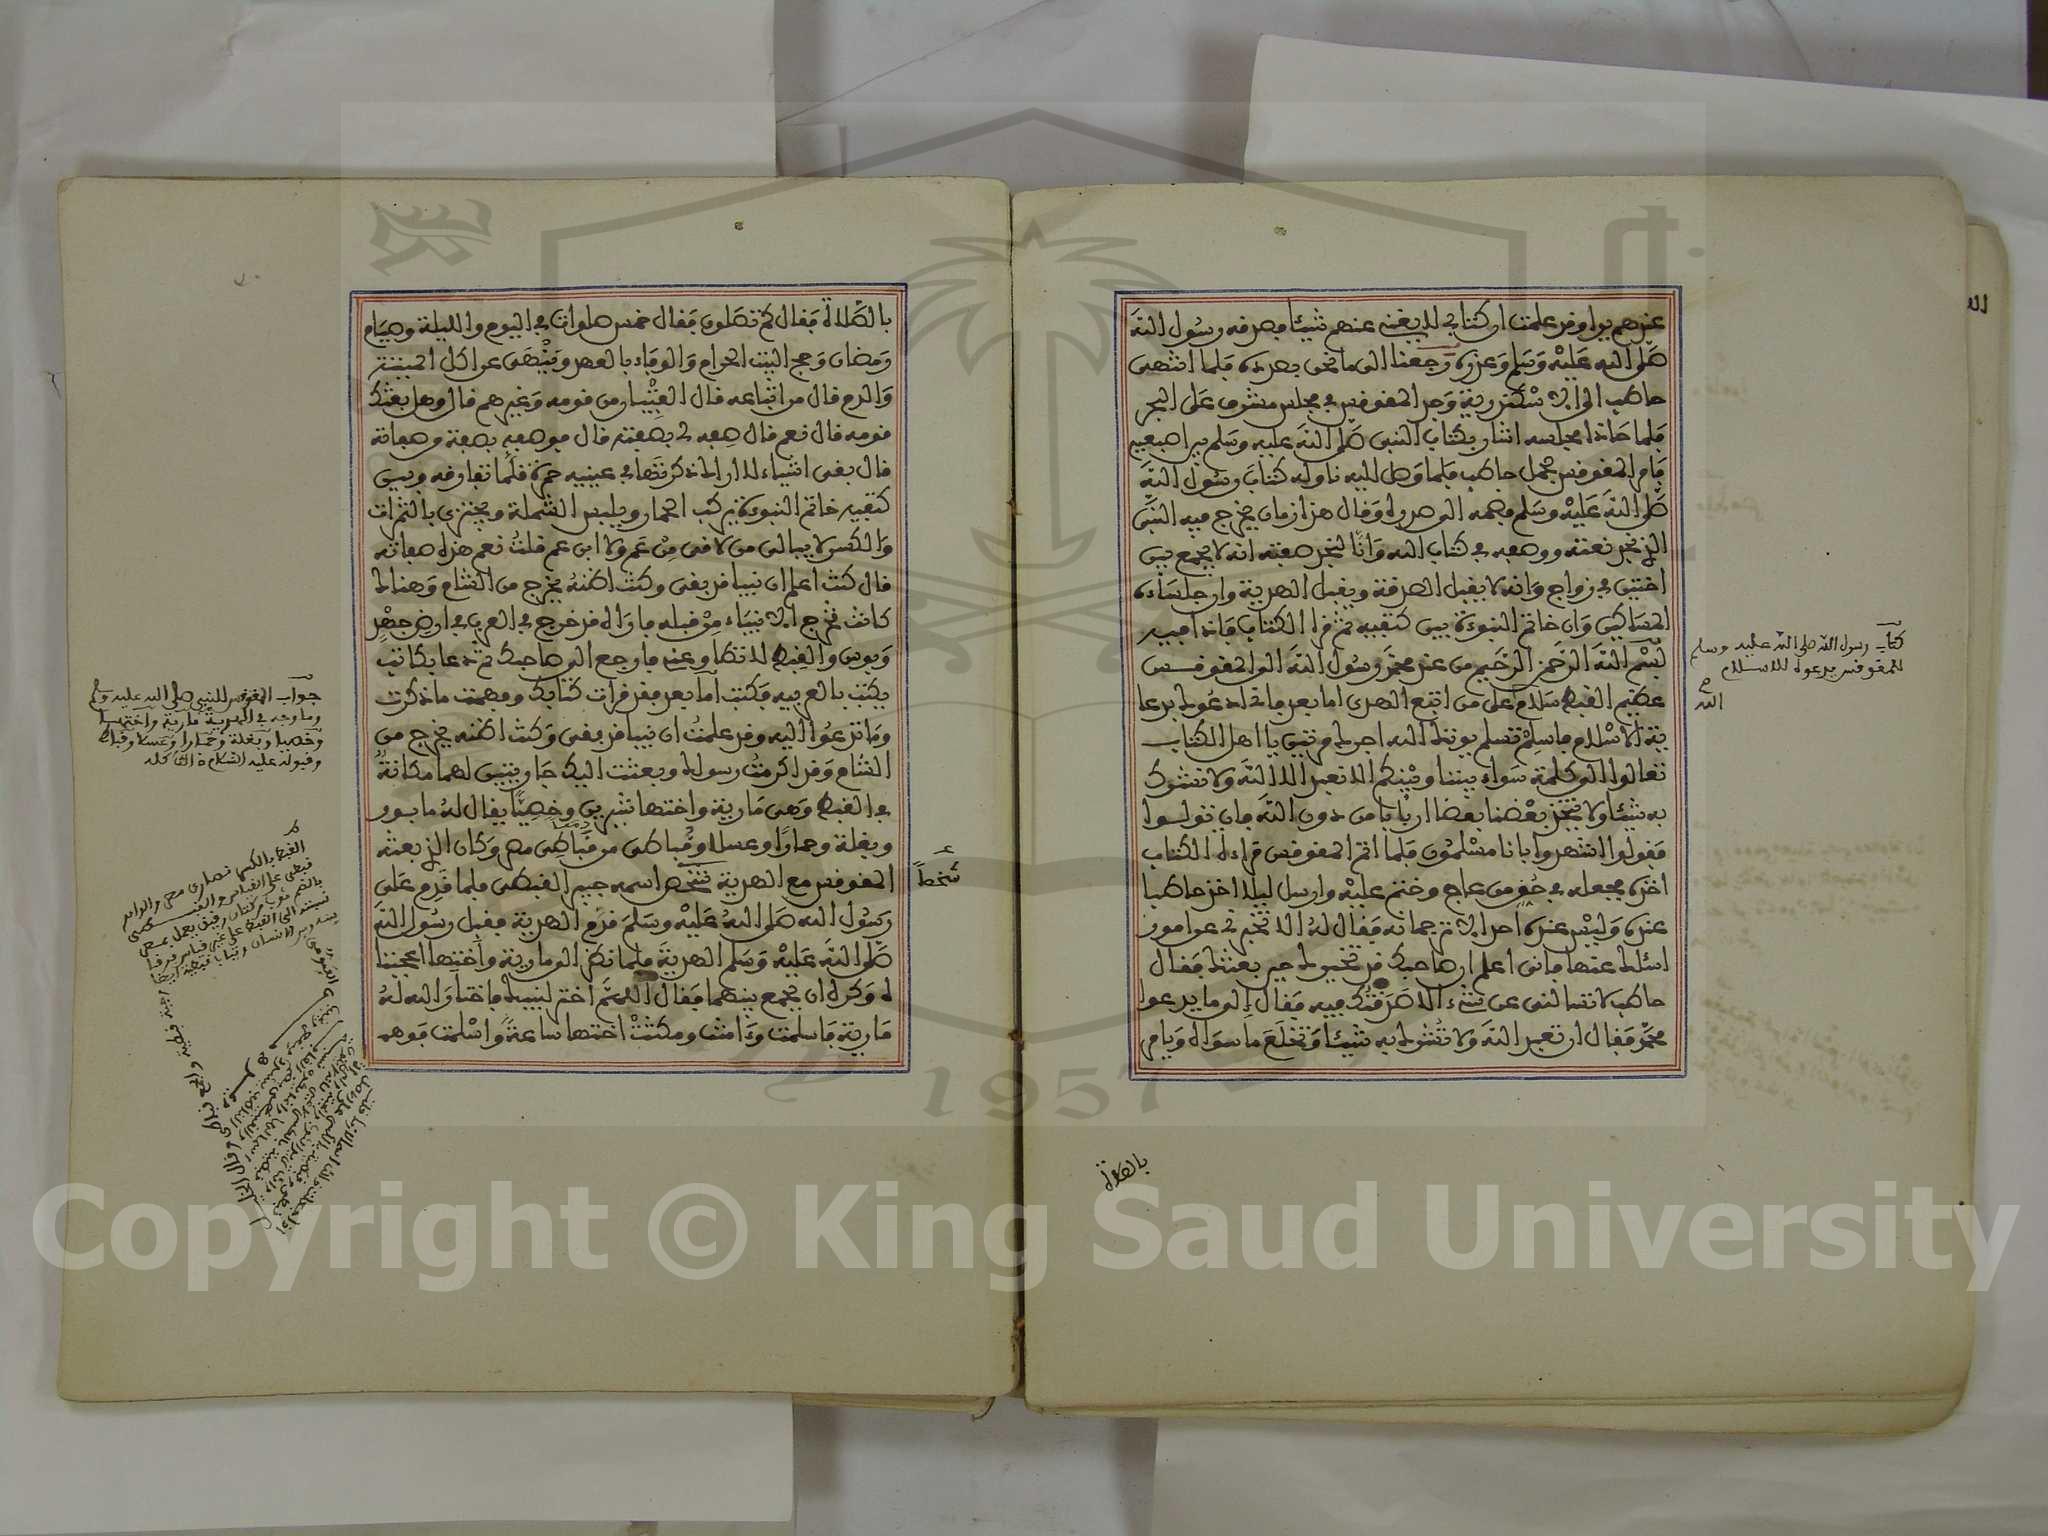 عندهم يدا وقد علمت ان كتابي لا يغني عنهم شيئا فصدقه رسول الله
صلى الله عليه وسلم وعذره رجعنا الى ما نحن بصدده فلما انتهى
حاطب الى الاسكندرية وجد المقوقس في مجلس مشرف على البحر
فلما حاذا مجلسه اشار بكتاب النبي صلى الله عليه وسلم بين اصبعيه
فامر المقوقس بحمل حاطب فلما وصل اليه ناوله كتاب رسول الله
صلى الله عليه وسلم فضمه الى صدره وقال هذا زمان يخرج فيه النبي
الذي نجد نعته ووصفه في كتاب الله وانا لنجد صفته انه لا يجمع بين
اختين في زواج وانه لا يقبل الصدقة ويقبل الهدية وان جلساءه
المساكين وان خاتم النبوة بين كتفيه ثم قرا الكتاب فاذا فيه
بسم الله الرحمن الرحيم من عند محمد رسول الله الى المقوقس
عظيم القبط سلام على من اتبع الهدى اما بعد فاني ادعوك بدعا
ية الاسلام فاسلم تسلم يوتك الله اجرك مرتين يا اهل الكتاب
تعالوا الى كلمة سواء بيننا وبينكم الا نعبد الا الله ولا نشرك
به شيئا ولا يتخذ بعضنا بعضا اربابا من دون الله فان تولوا
فقولوا اشهدوا بانا مسلمون فلما اتم المقوقس قراءة الكتاب
اخذه فجعله في حق من عاج وختم عليه وارسل ليلا اخذ حاطبا
عنده وليس عنده احد الا ترجمانه فقال له الا تخبرني عن امور
اسئلك عنها فاني اعلم ان صاحبك قد تخيرك حين بعثك فقال
حاطب لا تسالني عن شيء الا صدقتك فيه فقال الى ما يدعوا
محمد فقال ان تعبد الله ولا تشرك به شيئا وتخلع ما سواه ويامر
بالصلاة
كتاب رسول الله صلى الله عليه وسلم
للمقوقس يدعوه للاسلام
الله
بالصلاة فقال كم تصلون فقال خمس صلوات في اليوم والليلة وصيام
رمضان وحج البيت الحرام والوفاء بالعهد وينهى عن اكل الميتة
والدم قال من اتباعه قال الفتيان من قومه وغيرهم قال وهل يقتل
قومه قال نعم قال صفه لي بصفته قال فوصفه بصفة وصفاته
قال بقي اشياء لم ارك ذكرتها في عينيه حمرة قلما تفارقه وبين
كتفيه خاتم النبوة يركب الحمار ويلبس الشملة ويجتزي بالثمرات
والكسر لا يبالي من لاقى من عم ولا ابن عم قلت نعم هذه صفاته
قال كنت اعلم ان نبيا قد بقي وكنت اظنه يخرج من الشام وهناك
كانت تخرج الانبياء من قبله فاراه قد خرج في العرب في ارض جهد
وبوس والقبط لا تطاوعني فارجع الى صاحبك ثم دعا بكاتب
يكتب بالعربية فكتب اما بعد فقد قرات كتابك وفهمت ما ذكرت
وما تدعوا اليه وقد علمت ان نبيا قد بقي وكنت اظنه يخرج من
الشام وقد اكرمت رسولك وبعثت اليك جاريتين لهما مكانة
في القبط وهي مارية واختها شيرين وخصيا يقال له مابور
وبغلة وحمارا وعسلا وقباطي من قباطي مصر وكان الذي بعثه
المقوقس مع الهدية شخص اسمه جبر القبطي فلما قدم على
رسول الله صلى الله عليه وسلم قدم الهدية فقبل رسول الله
صلى الله عليه وسلم الهدية فلما نظر الى مارية واختها اعجبتا
ه وكره ان يجمع بينهما فقال اللهم اختر لنبيك فاختار الله له
مارية فاسلمت وءامنت ومكثت اختها ساعة واسلمت فوهب
شخصا
جواب المقوقس للنبي صلى الله عليه وسلم
وما وجه في الهدية مارية واختها
وخصيا وبغلة وحمارا وعسلا وقباطي
وقبوله عليه السلام ذلك كله
القبط بالكسر نصارى مصر والواحد
قبطي على القياس
بالضم ثوب من كتان رقيق يعمل بمصر
نسبة الى القبط على غير قياس فرقا
بينه وبين الانسان وثياب قبطية ايضا
Copyright © King Saud University
1957